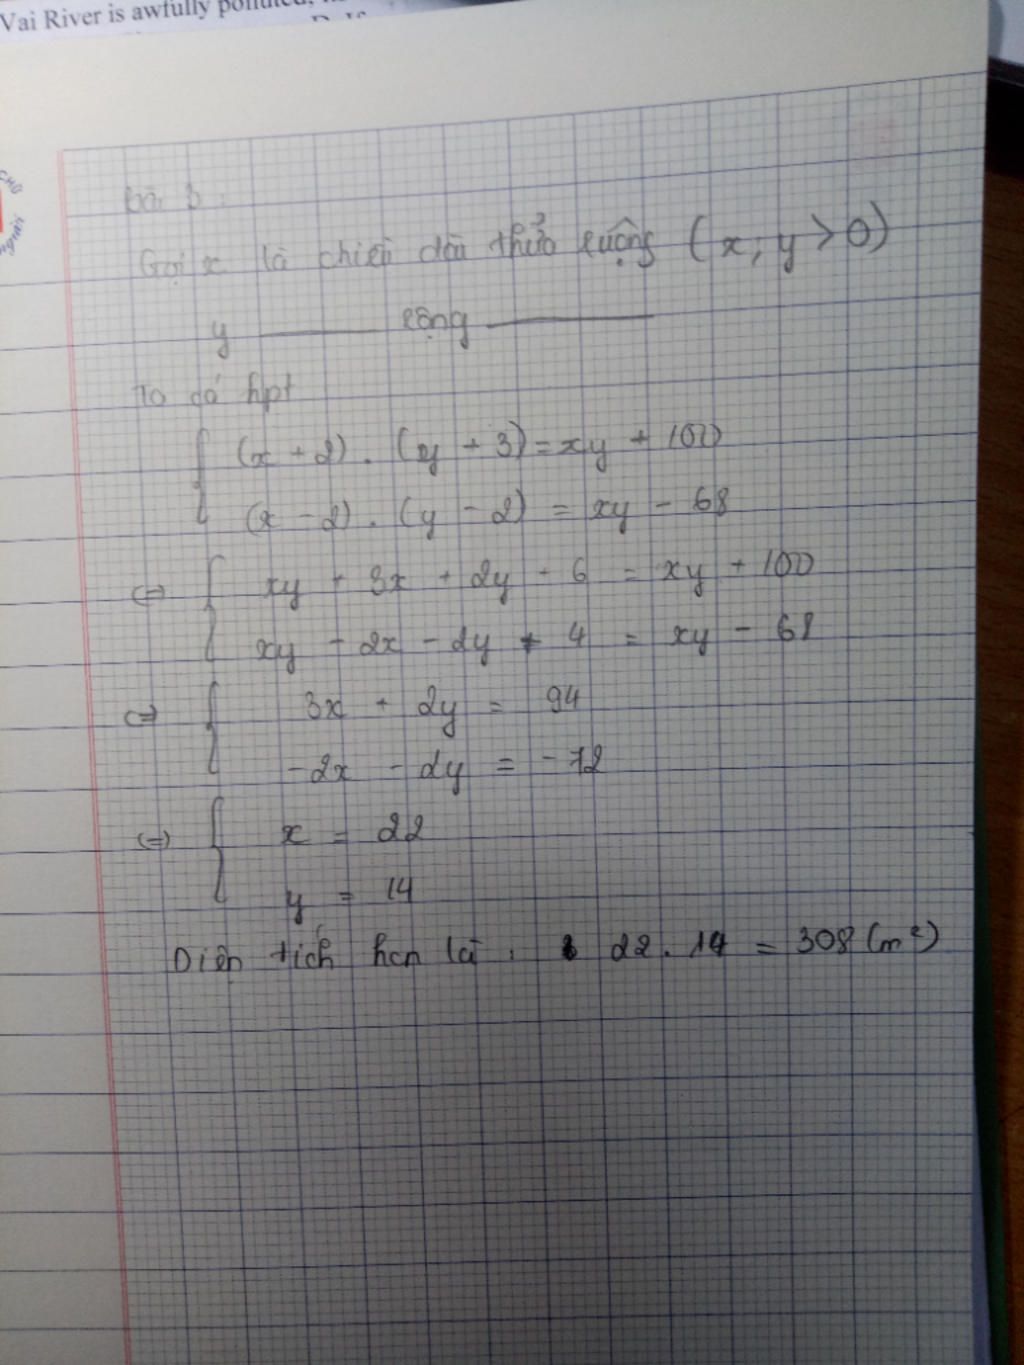 Vai River is awfully polluted,
Bài 3:
Gọi x là chiều dài thửa ruộng (x; y > 0)
y ——— rộng ———
Ta có hpt
{ (x + 2) . (y + 3) = xy + 100
(x - 2) . (y - 2) = xy - 68
(=) { xy + 3x + 2y + 6 = xy + 100
xy - 2x - 2y + 4 = xy - 68
(=) { 3x + 2y = 94
-2x - 2y = -72
(=) { x = 22
y = 14
Diện tích hcn là : 22 . 14 = 308 (m²)